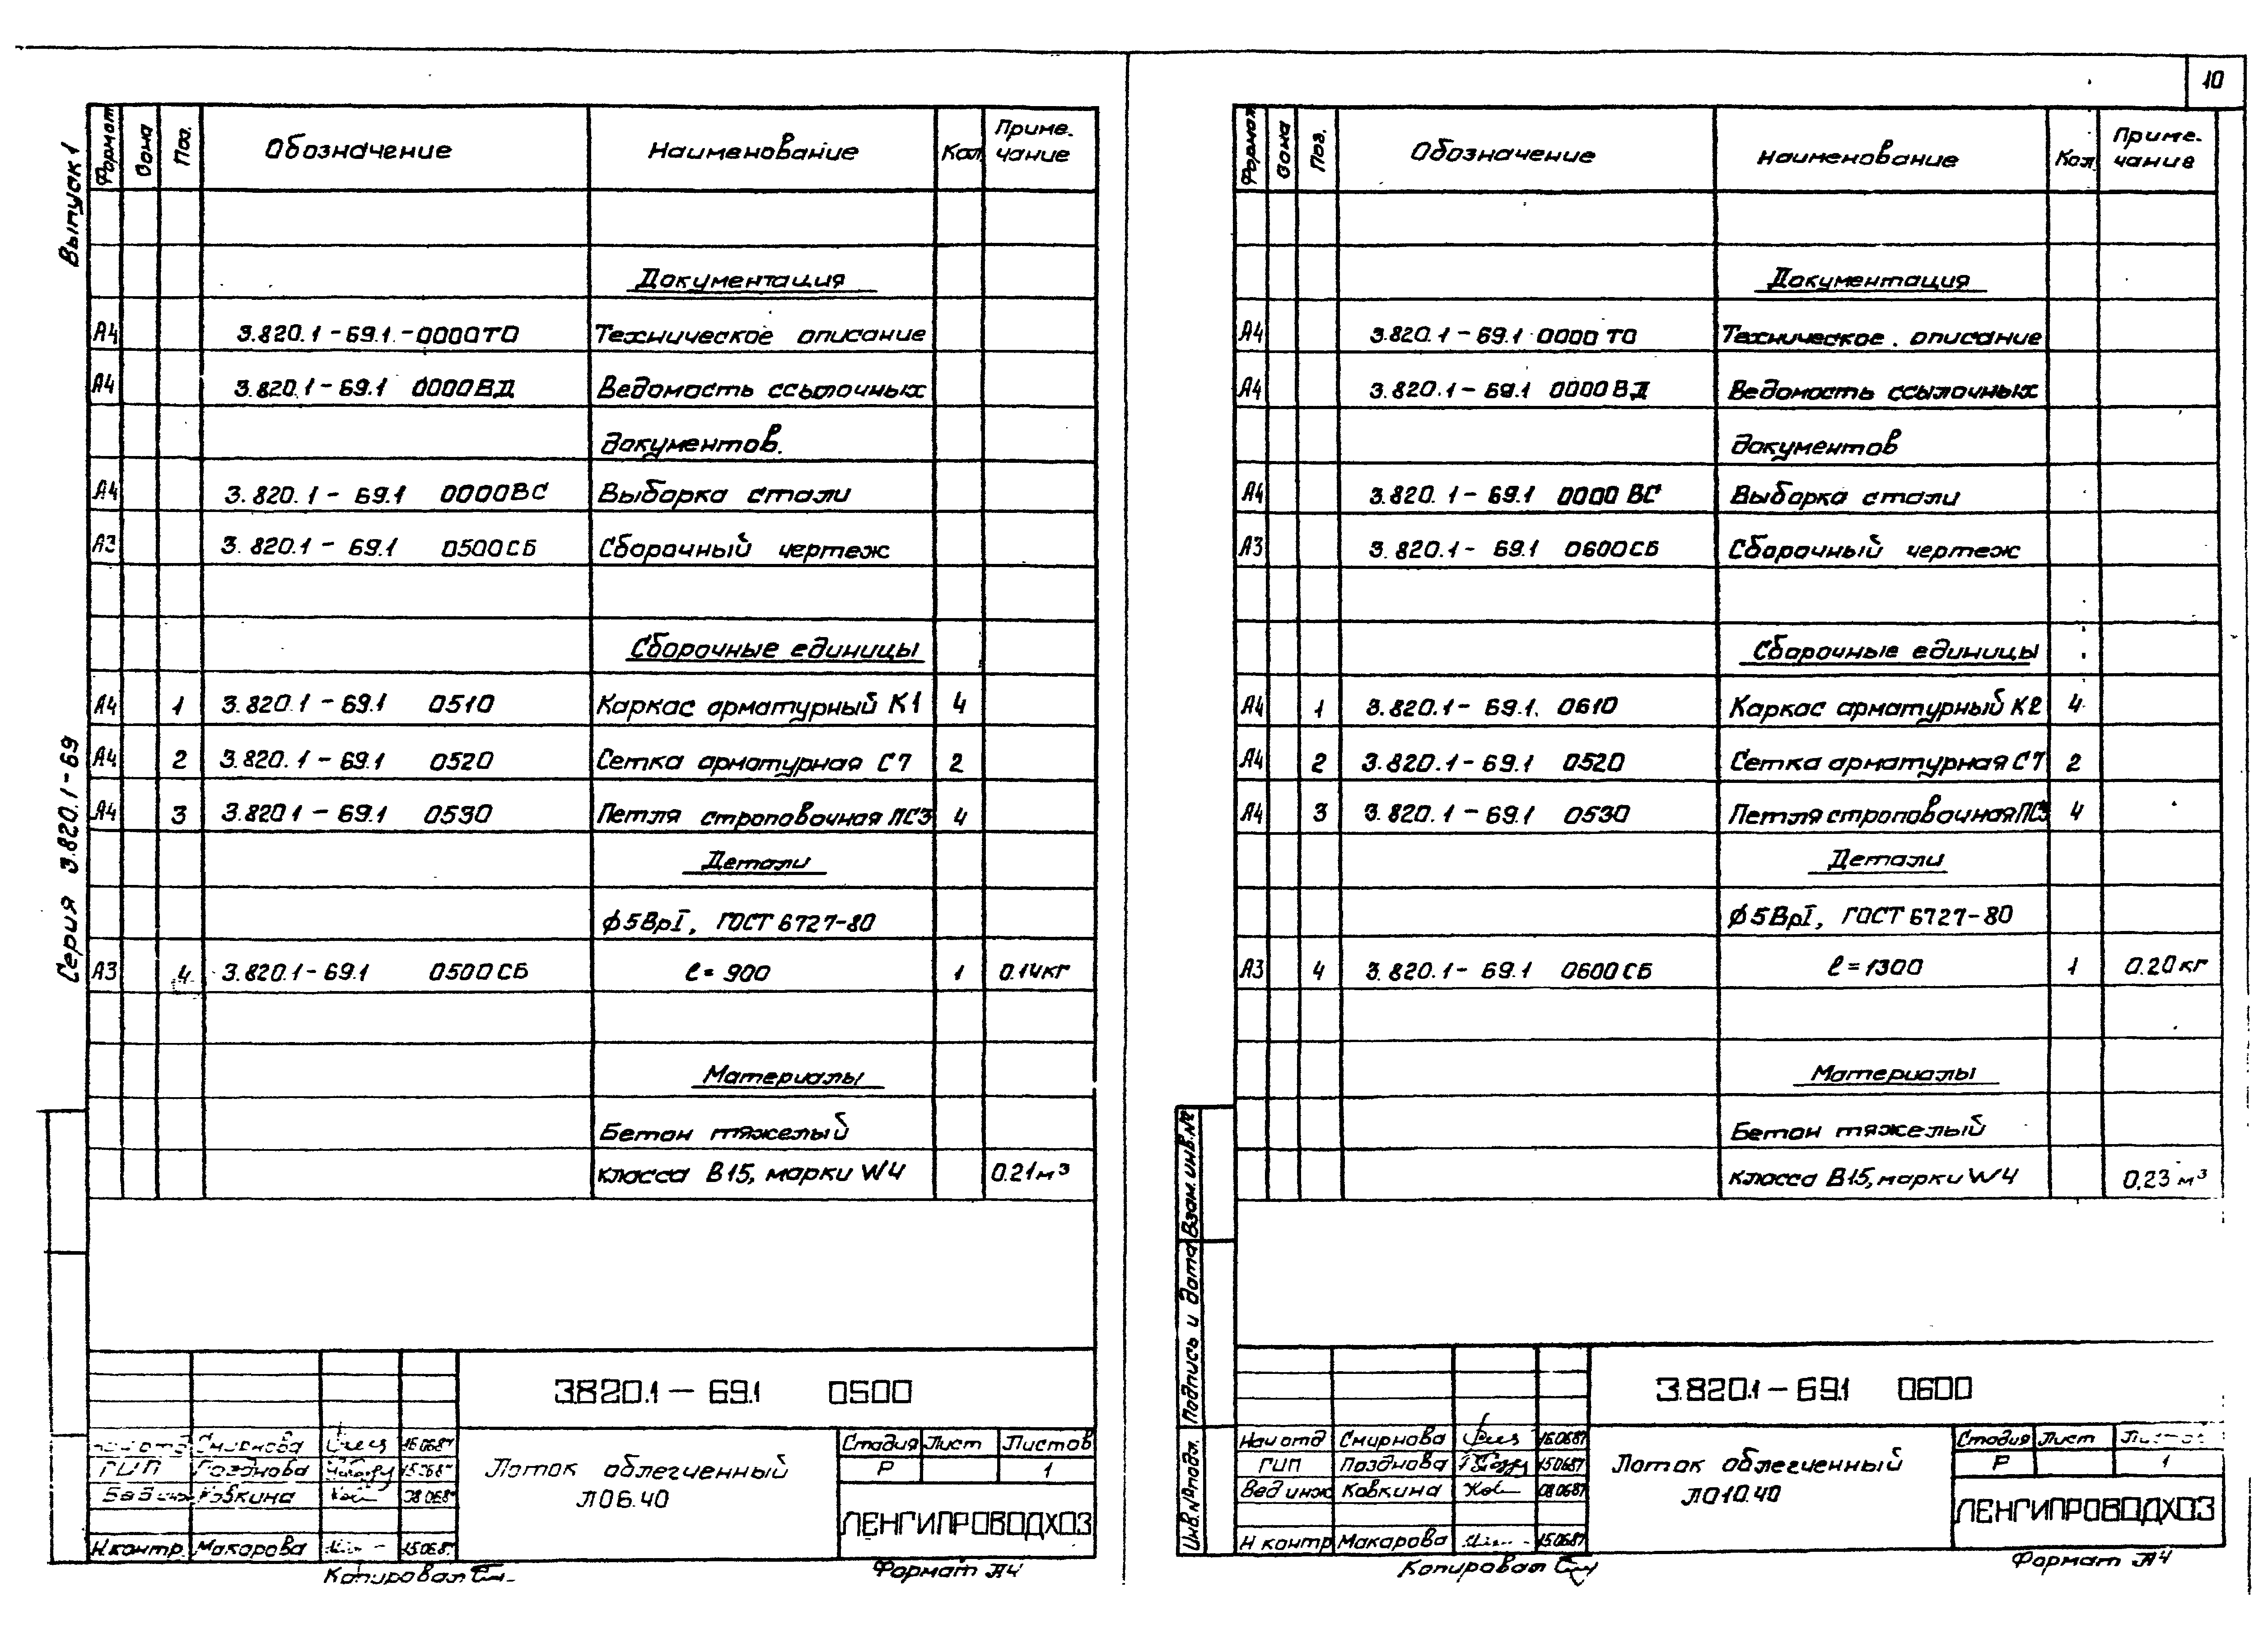 10
Выпуск 1
Серия 3.820.1-69
Формат Зона Поз. Обозначение Наименование Кол. Приме-
чание
Документация
А4 3.820.1-69.1-0000ТО Техническое описание
А4 3.820.1-69.1 0000ВД Ведомость ссылочных
документов.
А4 3.820.1-69.1 0000ВС Выборка стали
А3 3.820.1-69.1 0500СБ Сборочный чертеж
Сборочные единицы
А4 1 3.820.1-69.1 0510 Каркас арматурный К1 4
А4 2 3.820.1-69.1 0520 Сетка арматурная С7 2
А4 3 3.820.1-69.1 0530 Петля строповочная ПС3 4
Детали
ф5ВрI, ГОСТ 6727-80
А3 4 3.820.1-69.1 0500СБ ℓ=900 1 0.14кг
Материалы
Бетон тяжелый
класса В15, марки W4 0.21м³
3.820.1-69.1 0500
Нач отд Смирнова 16.06.87
ГИП Позднова 15.06.87
Вед инж Ковкина 08.06.87
Н контр. Макарова 15.06.87
Лоток облегченный
ЛО6.40
Стадия Лист Листов
Р 1
ЛЕНГИПРОВОДХОЗ
Копировал
Формат А4
Формат Зона Поз. Обозначение Наименование Кол Приме-
чание
Документация
А4 3.820.1-69.1 0000ТО Техническое описание
А4 3.820.1-69.1 0000ВД Ведомость ссылочных
документов
А4 3.820.1-69.1 0000ВС Выборка стали
А3 3.820.1-69.1 0600СБ Сборочный чертеж
Сборочные единицы
А4 1 3.820.1-69.1. 0610 Каркас арматурный К2 4
А4 2 3.820.1-69.1 0520 Сетка арматурная С7 2
А4 3 3.820.1-69.1 0530 Петля строповочная ПС3 4
Детали
ф5ВрI, ГОСТ 6727-80
А3 4 3.820.1-69.1 0600СБ ℓ=1300 1 0.20кг
Материалы
Бетон тяжелый
класса В15, марки W4 0.23м³
Взам. инв. №
Подпись и дата
Инв. № подл.
3.820.1-69.1 0600
Нач отд Смирнова 16.06.87
ГИП Позднова 15.06.87
Вед инж Ковкина 08.06.87
Н контр Макарова 15.06.87
Лоток облегченный
ЛО10.40
Стадия Лист Листов
Р 1
ЛЕНГИПРОВОДХОЗ
Копировал
Формат А4